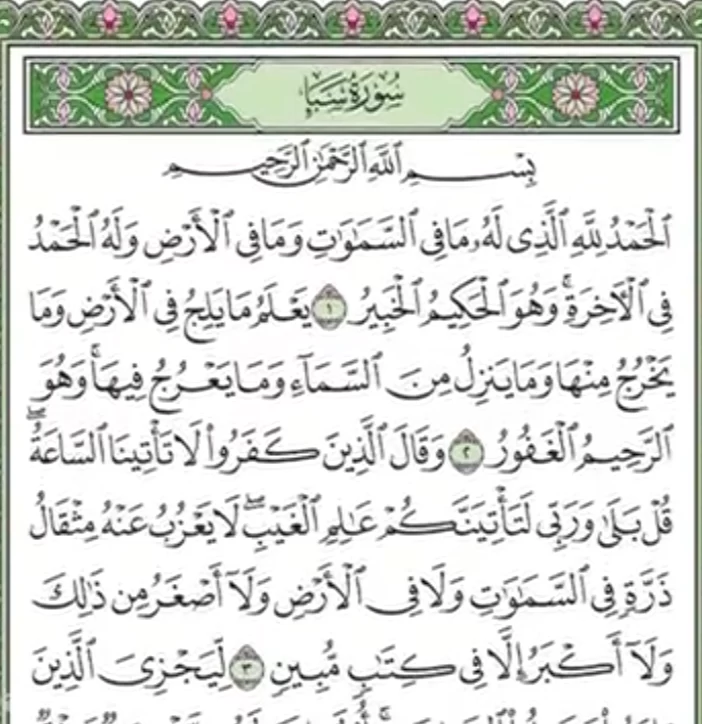 سُورَةُ سَبَإٍ
بِسْمِ ٱللَّهِ ٱلرَّحْمَٰنِ ٱلرَّحِيمِ
ٱلْحَمْدُ لِلَّهِ ٱلَّذِى لَهُۥ مَا فِى ٱلسَّمَٰوَٰتِ وَمَا فِى ٱلْأَرْضِ وَلَهُ ٱلْحَمْدُ
فِى ٱلْأَخِرَةِۚ وَهُوَ ٱلْحَكِيمُ ٱلْخَبِيرُ ١ يَعْلَمُ مَا يَلِجُ فِى ٱلْأَرْضِ وَمَا
يَخْرُجُ مِنْهَا وَمَا يَنزِلُ مِنَ ٱلسَّمَآءِ وَمَا يَعْرُجُ فِيهَاۚ وَهُوَ
ٱلرَّحِيمُ ٱلْغَفُورُ ٢ وَقَالَ ٱلَّذِينَ كَفَرُوا۟ لَا تَأْتِينَا ٱلسَّاعَةُۖ
قُلْ بَلَىٰ وَرَبِّى لَتَأْتِيَنَّكُمْ عَٰلِمِ ٱلْغَيْبِۖ لَا يَعْزُبُ عَنْهُ مِثْقَالُ
ذَرَّةٍ فِى ٱلسَّمَٰوَٰتِ وَلَا فِى ٱلْأَرْضِ وَلَآ أَصْغَرُ مِن ذَٰلِكَ
وَلَآ أَكْبَرُ إِلَّا فِى كِتَٰبٍ مُّبِينٍ ٣ لِّيَجْزِىَ ٱلَّذِينَ